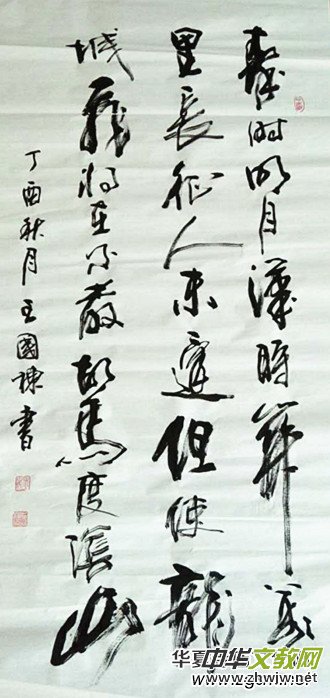 秦时明月漢時關萬
里長征人未還但使龍
城飛將在不教胡馬度陰山
丁酉秋月王國書
华夏
中华文教网
www.zhwjw.net